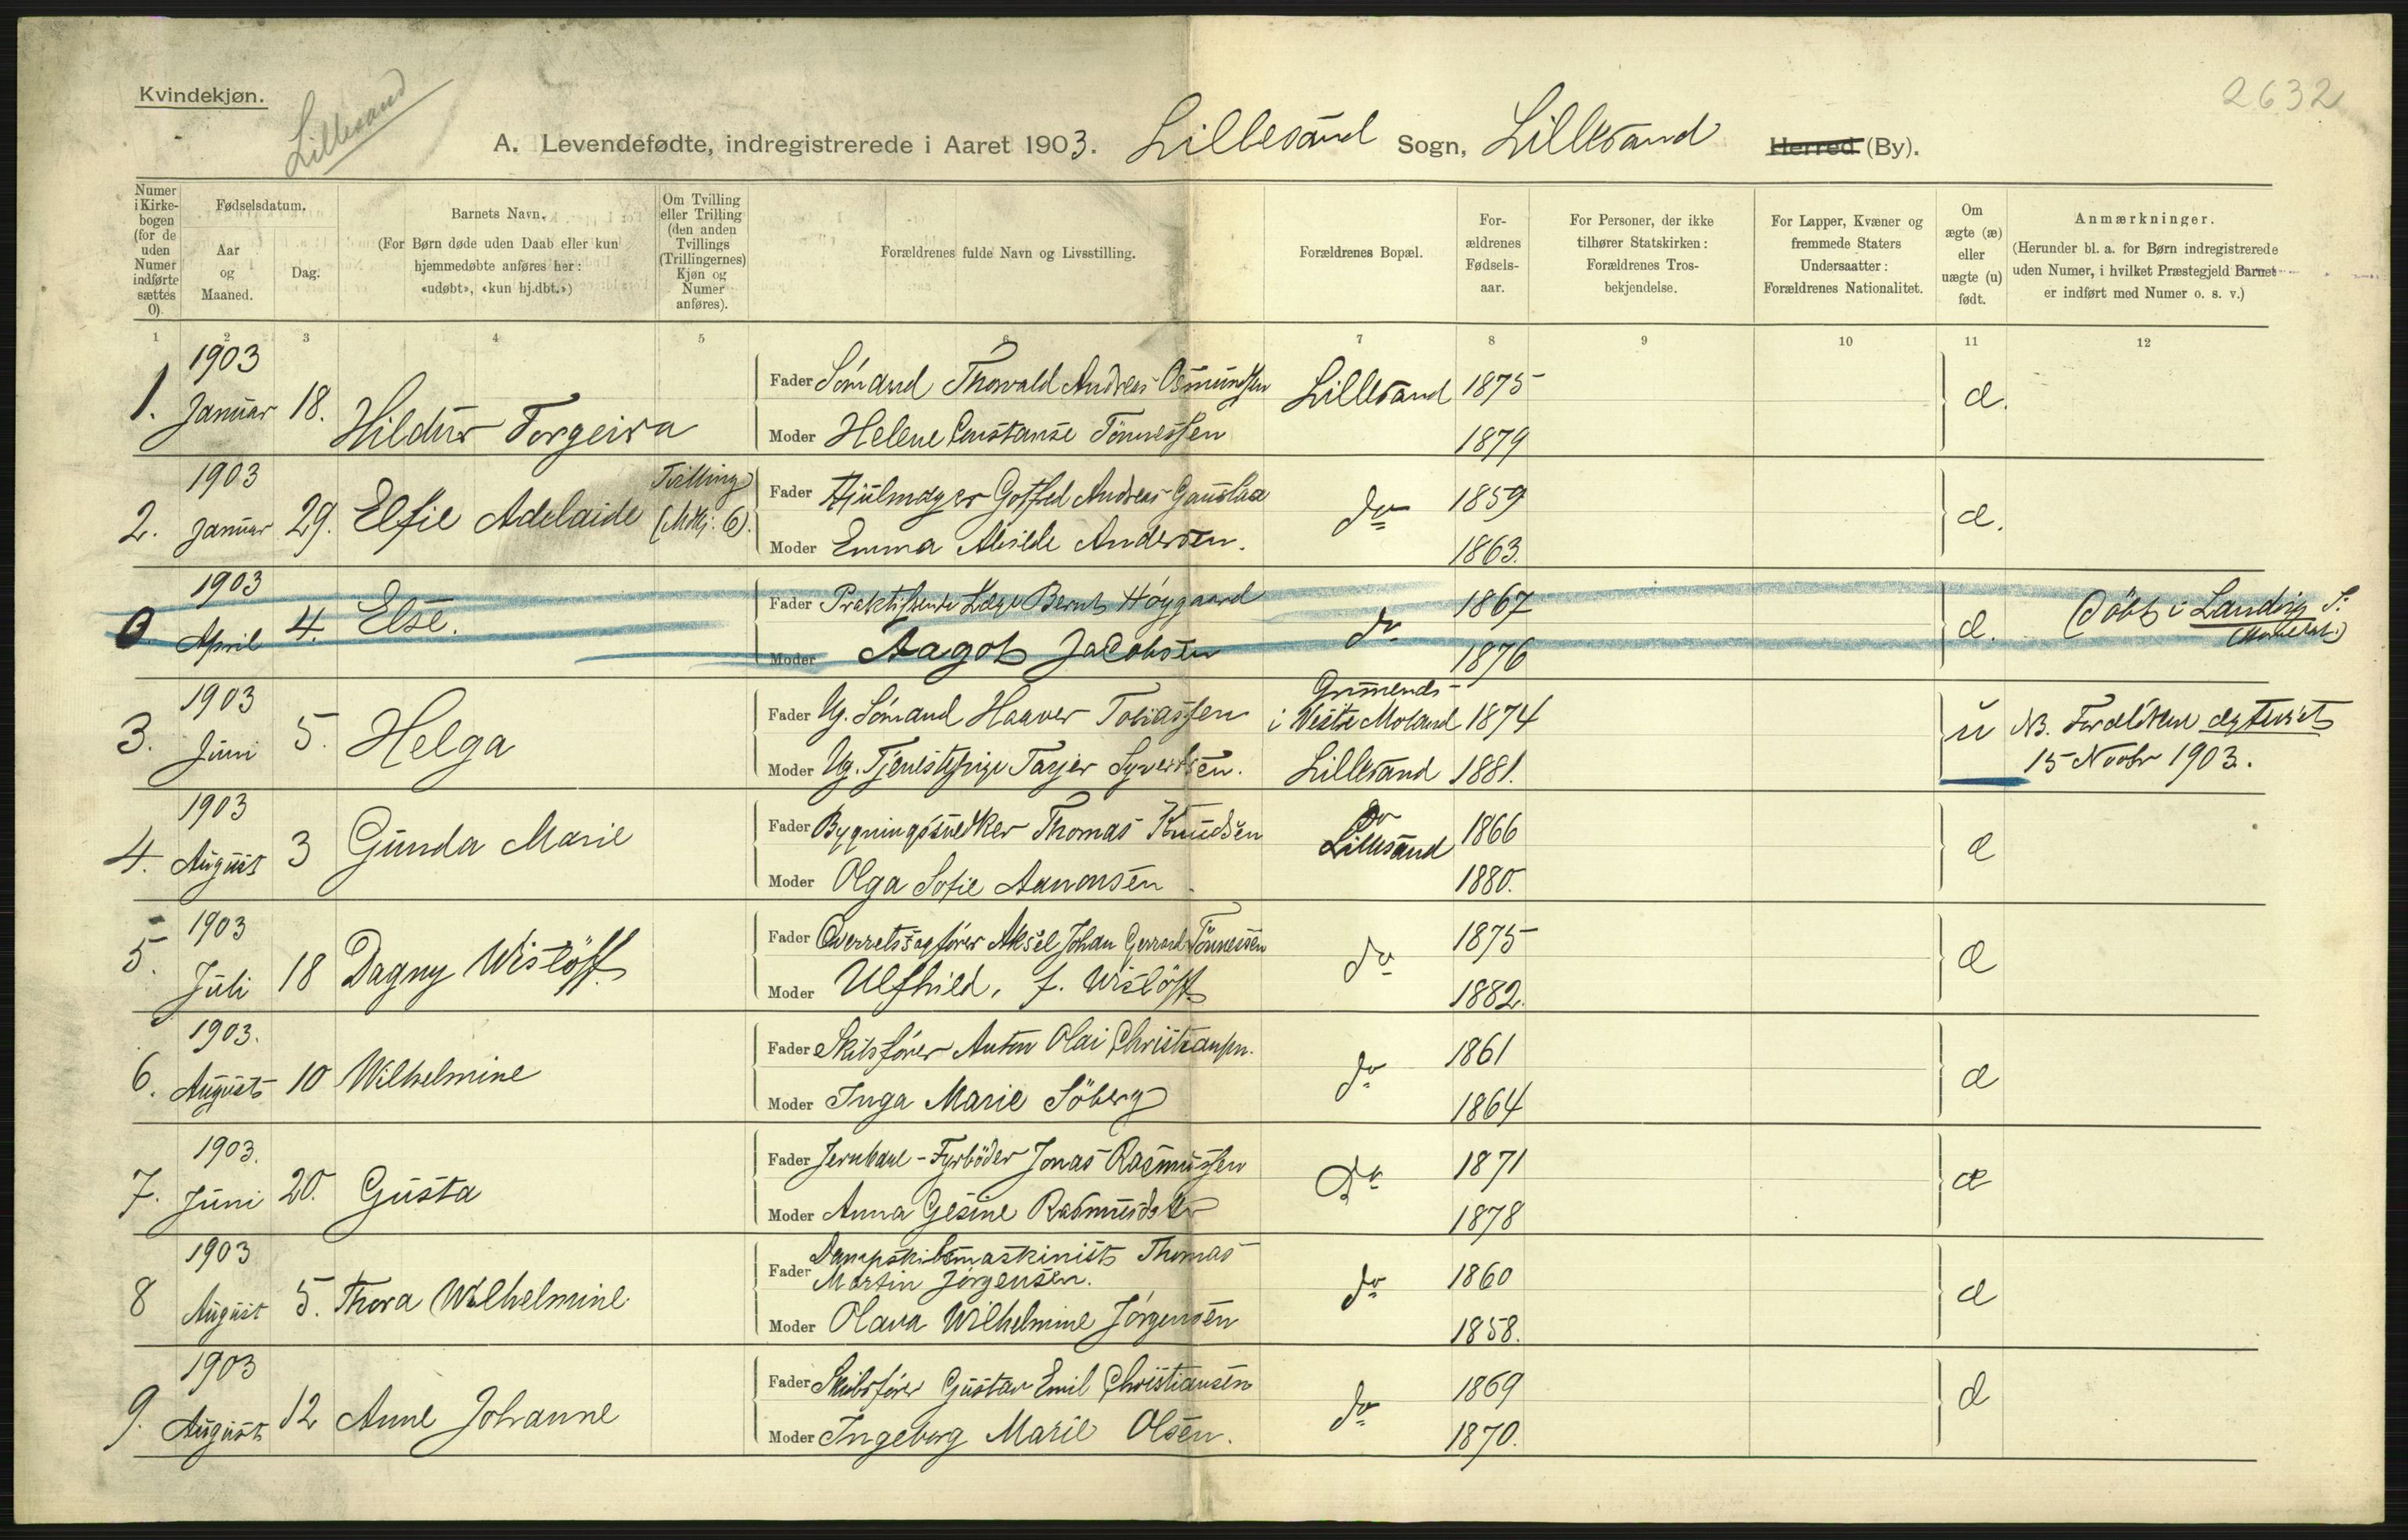 Kvindekjøn.
Lillesand
2632
A. Levendefødte, indregistrerede i Aaret 1903. Lillesand Sogn, Lillesand Herred (By).
Numer i Kirkebogen (for de uden Numer indførte sættes 0).
Fødselsdatum.
Aar og Maaned.
Dag.
Barnets Navn.
(For Børn døde uden Daab eller kun hjemmedøbte anføres her: «udøbt», «kun hj.dbt.»)
Om Tvilling eller Trilling (den anden Tvillings (Trillingernes) Kjøn og Numer anføres).
Forældrenes fulde Navn og Livsstilling.
Forældrenes Bopæl.
Forældrenes Fødselsaar.
For Personer, der ikke tilhører Statskirken: Forældrenes Trosbekjendelse.
For Lapper, Kvæner og fremmede Staters Undersaatter: Forældrenes Nationalitet.
Om ægte (æ) eller uægte (u) født.
Anmærkninger.
(Herunder bl. a. for Børn indregistrerede uden Numer, i hvilket Præstegjeld Barnet er indført med Numer o. s. v.)
1 2 3 4 5 6 7 8 9 10 11 12
1. 1903 Januar 18. Hildur Torgeira
Fader Sømand Thorvald Andreas Osmundsen Lillesand 1875 æ.
Moder Helene Constanse Tönnessen 1879
2. 1903 Januar 29. Elfie Adelaide Tvilling (Mkj. 6).
Fader Hjulmager Gotfred Andreas Gauslaa do 1859 æ.
Moder Emma Alvilde Andersen. 1863.
0. 1903 April 4. Else.
Fader Praktiserende Læge Bernt Höygaard do 1867 æ. Döbt i Landvig S.
Moder Aagot Jacobsen 1876
3. 1903 Juni 5. Helga
Fader Ug. Sømand Haaver Tobiassen i Vestre Moland 1874 u NB. Forældrene ægteviet
Moder Ug. Tjenestepige Tarjer Syvertsen. Lillesand 1881. 15 Novbr 1903.
4. 1903 August 3 Gunda Marie
Fader Bygningssnedker Thomas Knudsen Do Lillesand 1866 æ
Moder Olga Sofie Aanonsen 1880.
5. 1903 Juli 18 Dagny Wislöff.
Fader Overretssagfører Aksel Johan Gerrard Tönnessen do 1875 æ
Moder Ulfhild, f. Wislöff 1882.
6. 1903. August 10 Wilhelmine
Fader Skibsfører Anton Olai Christiansen. do 1861 æ
Moder Inga Marie Söberg 1864
7. 1903. Juni 20. Gusta
Fader Jernbane-Fyrböder Jonas Rasmussen Do 1871 æ
Moder Anna Gesine Rasmusdatter 1878
8 1903 August 5. Thora Wilhelmine
Fader Dampskibsmaskinist Thomas Martin Jørgensen. do 1860 æ
Moder Olava Wilhelmine Jørgensen 1858.
9. 1903 August 12 Anne Johanne
Fader Skibsfører Gustav Emil Christiansen do 1869 æ
Moder Ingeborg Marie Olsen. 1870.